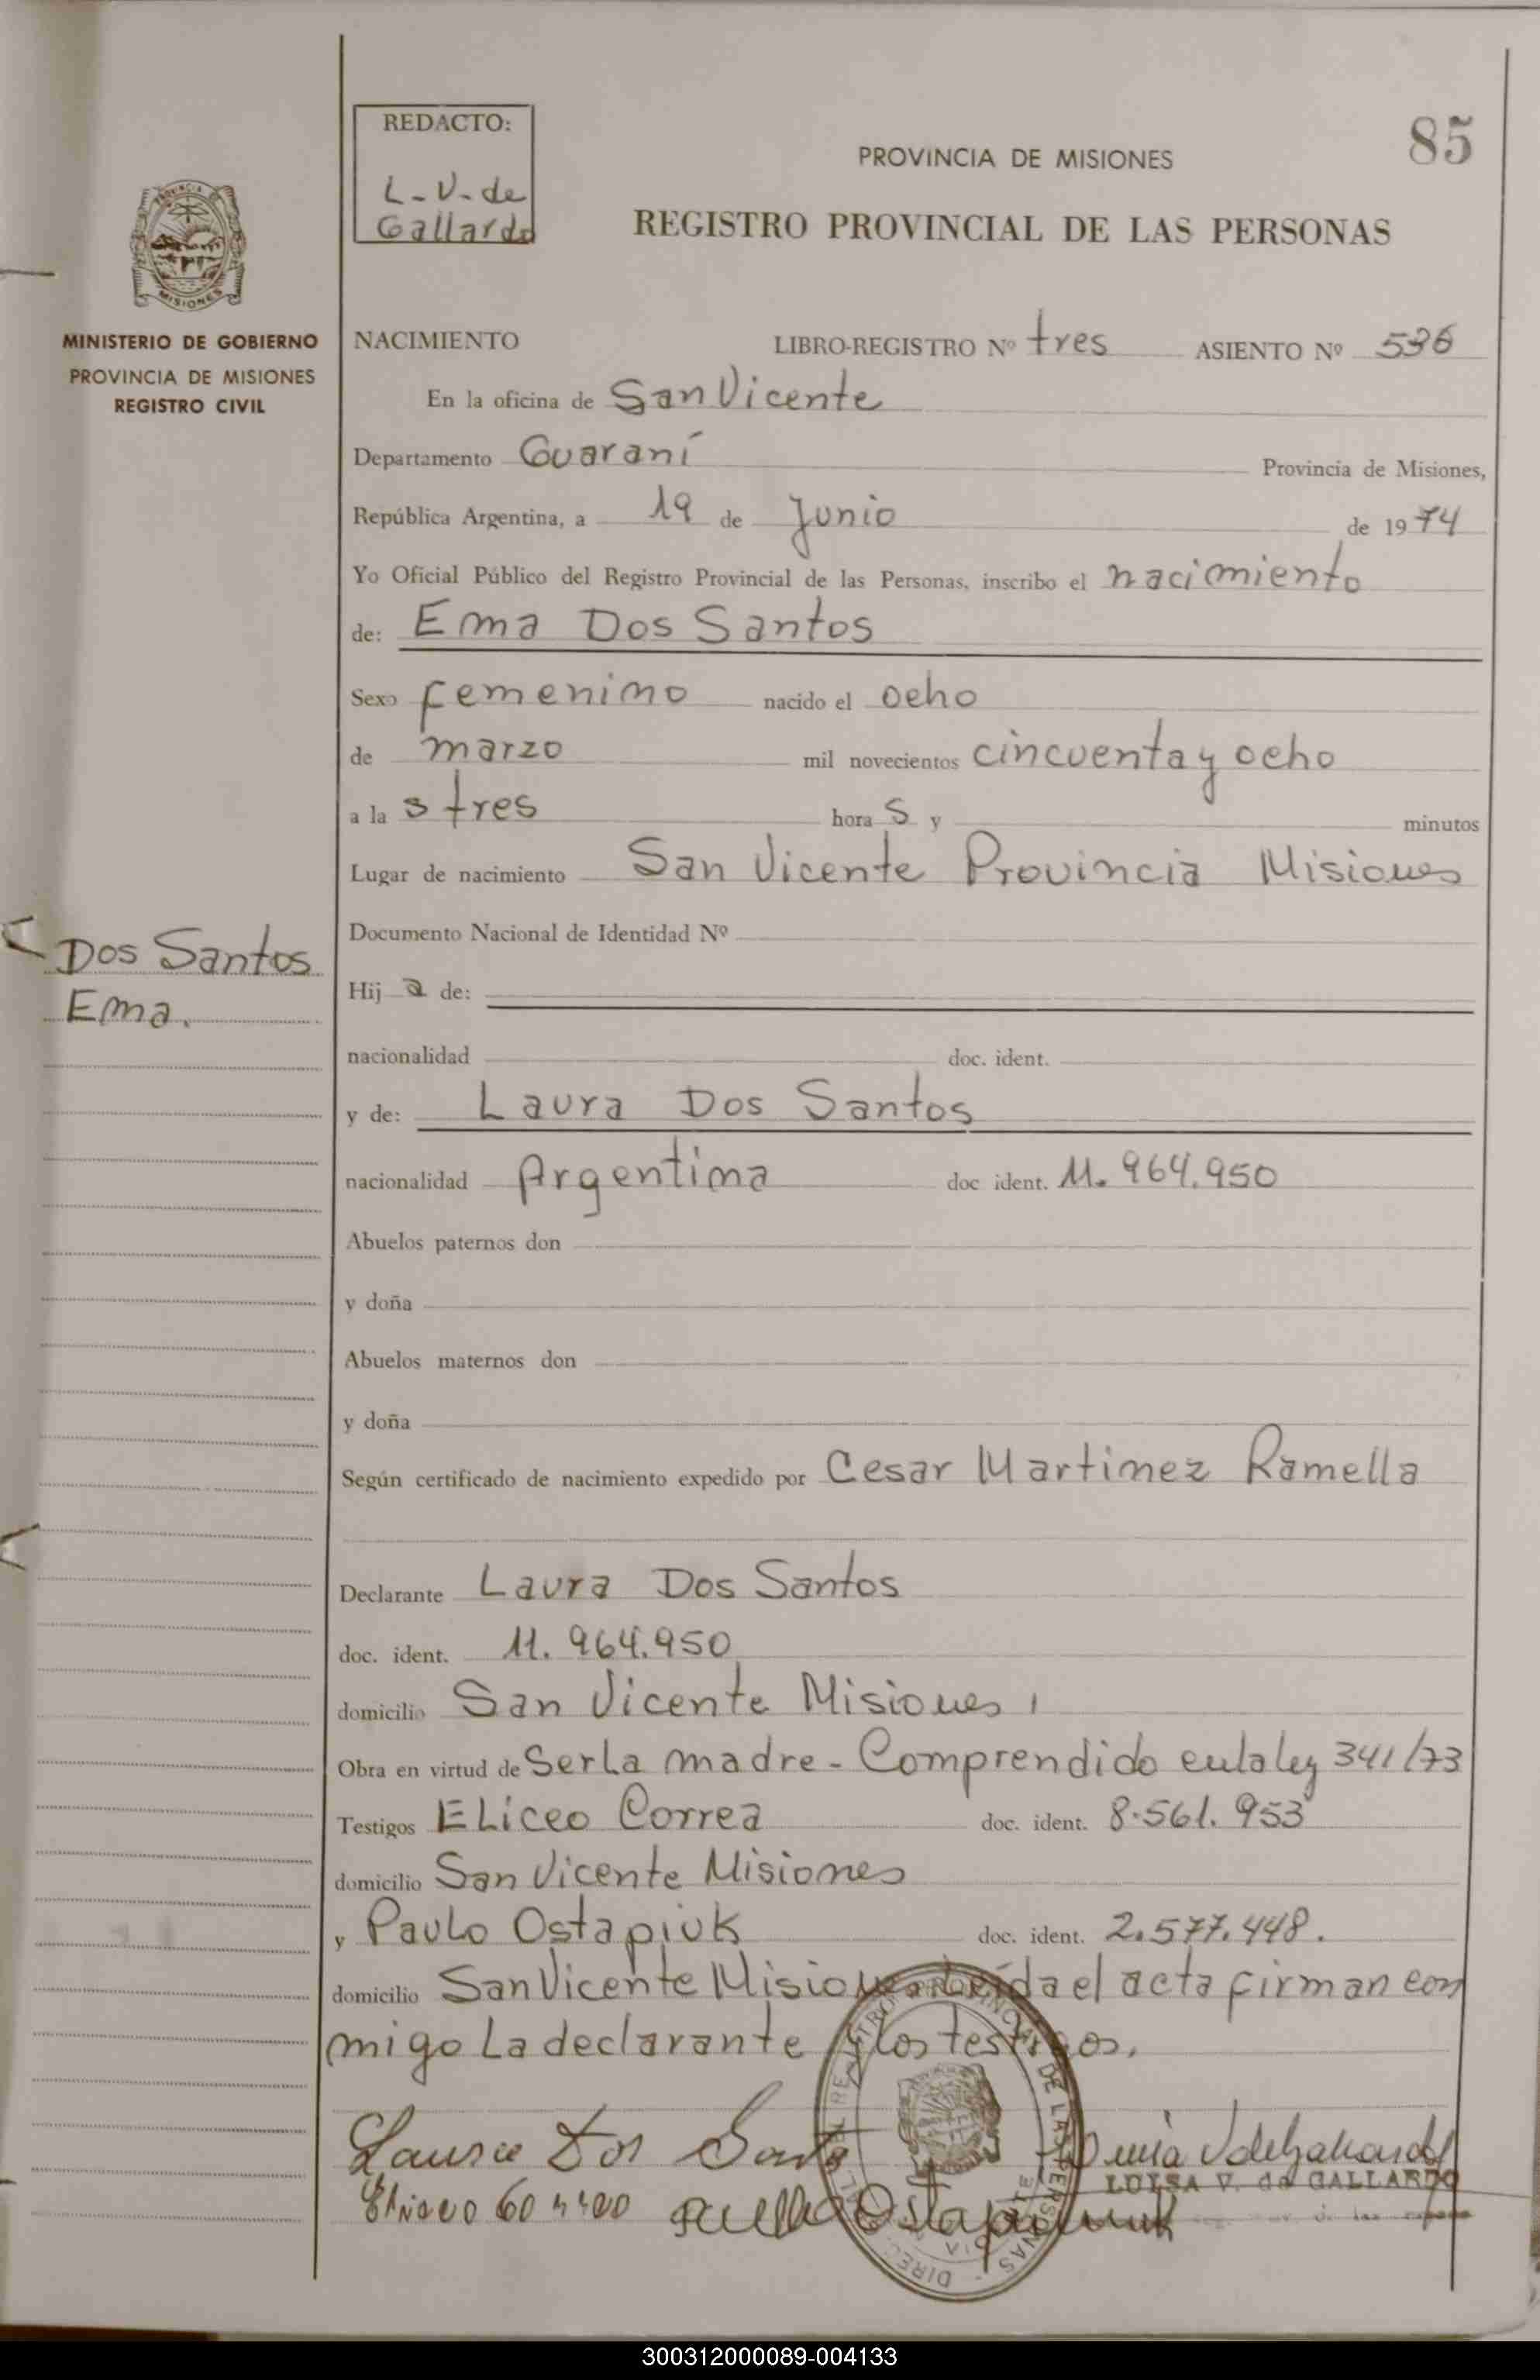 REDACTO:
L-V-de
Gallardo
85
PROVINCIA DE MISIONES
REGISTRO PROVINCIAL DE LAS PERSONAS
MISIONES
MINISTERIO DE GOBIERNO
PROVINCIA DE MISIONES
REGISTRO CIVIL
NACIMIENTO LIBRO-REGISTRO Nº tres ASIENTO Nº 536
En la oficina de San Vicente
Departamento Guaraní Provincia de Misiones,
República Argentina, a 19 de Junio de 1974
Yo Oficial Público del Registro Provincial de las Personas, inscribo el nacimiento
de: Ema Dos Santos
Sexo femenino nacido el ocho
de marzo mil novecientos cincuenta y ocho
a las tres horas y minutos
Lugar de nacimiento San Vicente Provincia Misiones
Documento Nacional de Identidad Nº
Dos Santos
Ema.
Hija de:
nacionalidad doc. ident.
y de: Laura Dos Santos
nacionalidad Argentina doc ident. 11.964.950
Abuelos paternos don
y doña
Abuelos maternos don
y doña
Según certificado de nacimiento expedido por Cesar Martinez Ramella
Declarante Laura Dos Santos
doc. ident. 11.964.950
domicilio San Vicente Misiones,
Obra en virtud de Ser La madre - Comprendido en la ley 341/73
Testigos ELiceo Correa doc. ident. 8.561.953
domicilio San Vicente Misiones
y PauLo Ostapiuk doc. ident. 2.577.448.
domicilio San Vicente Misiones Leída el acta firman con
migo La declarante y los testigos.
Laura Dos Santo
LUISA V. de GALLARDO
300312000089-004133